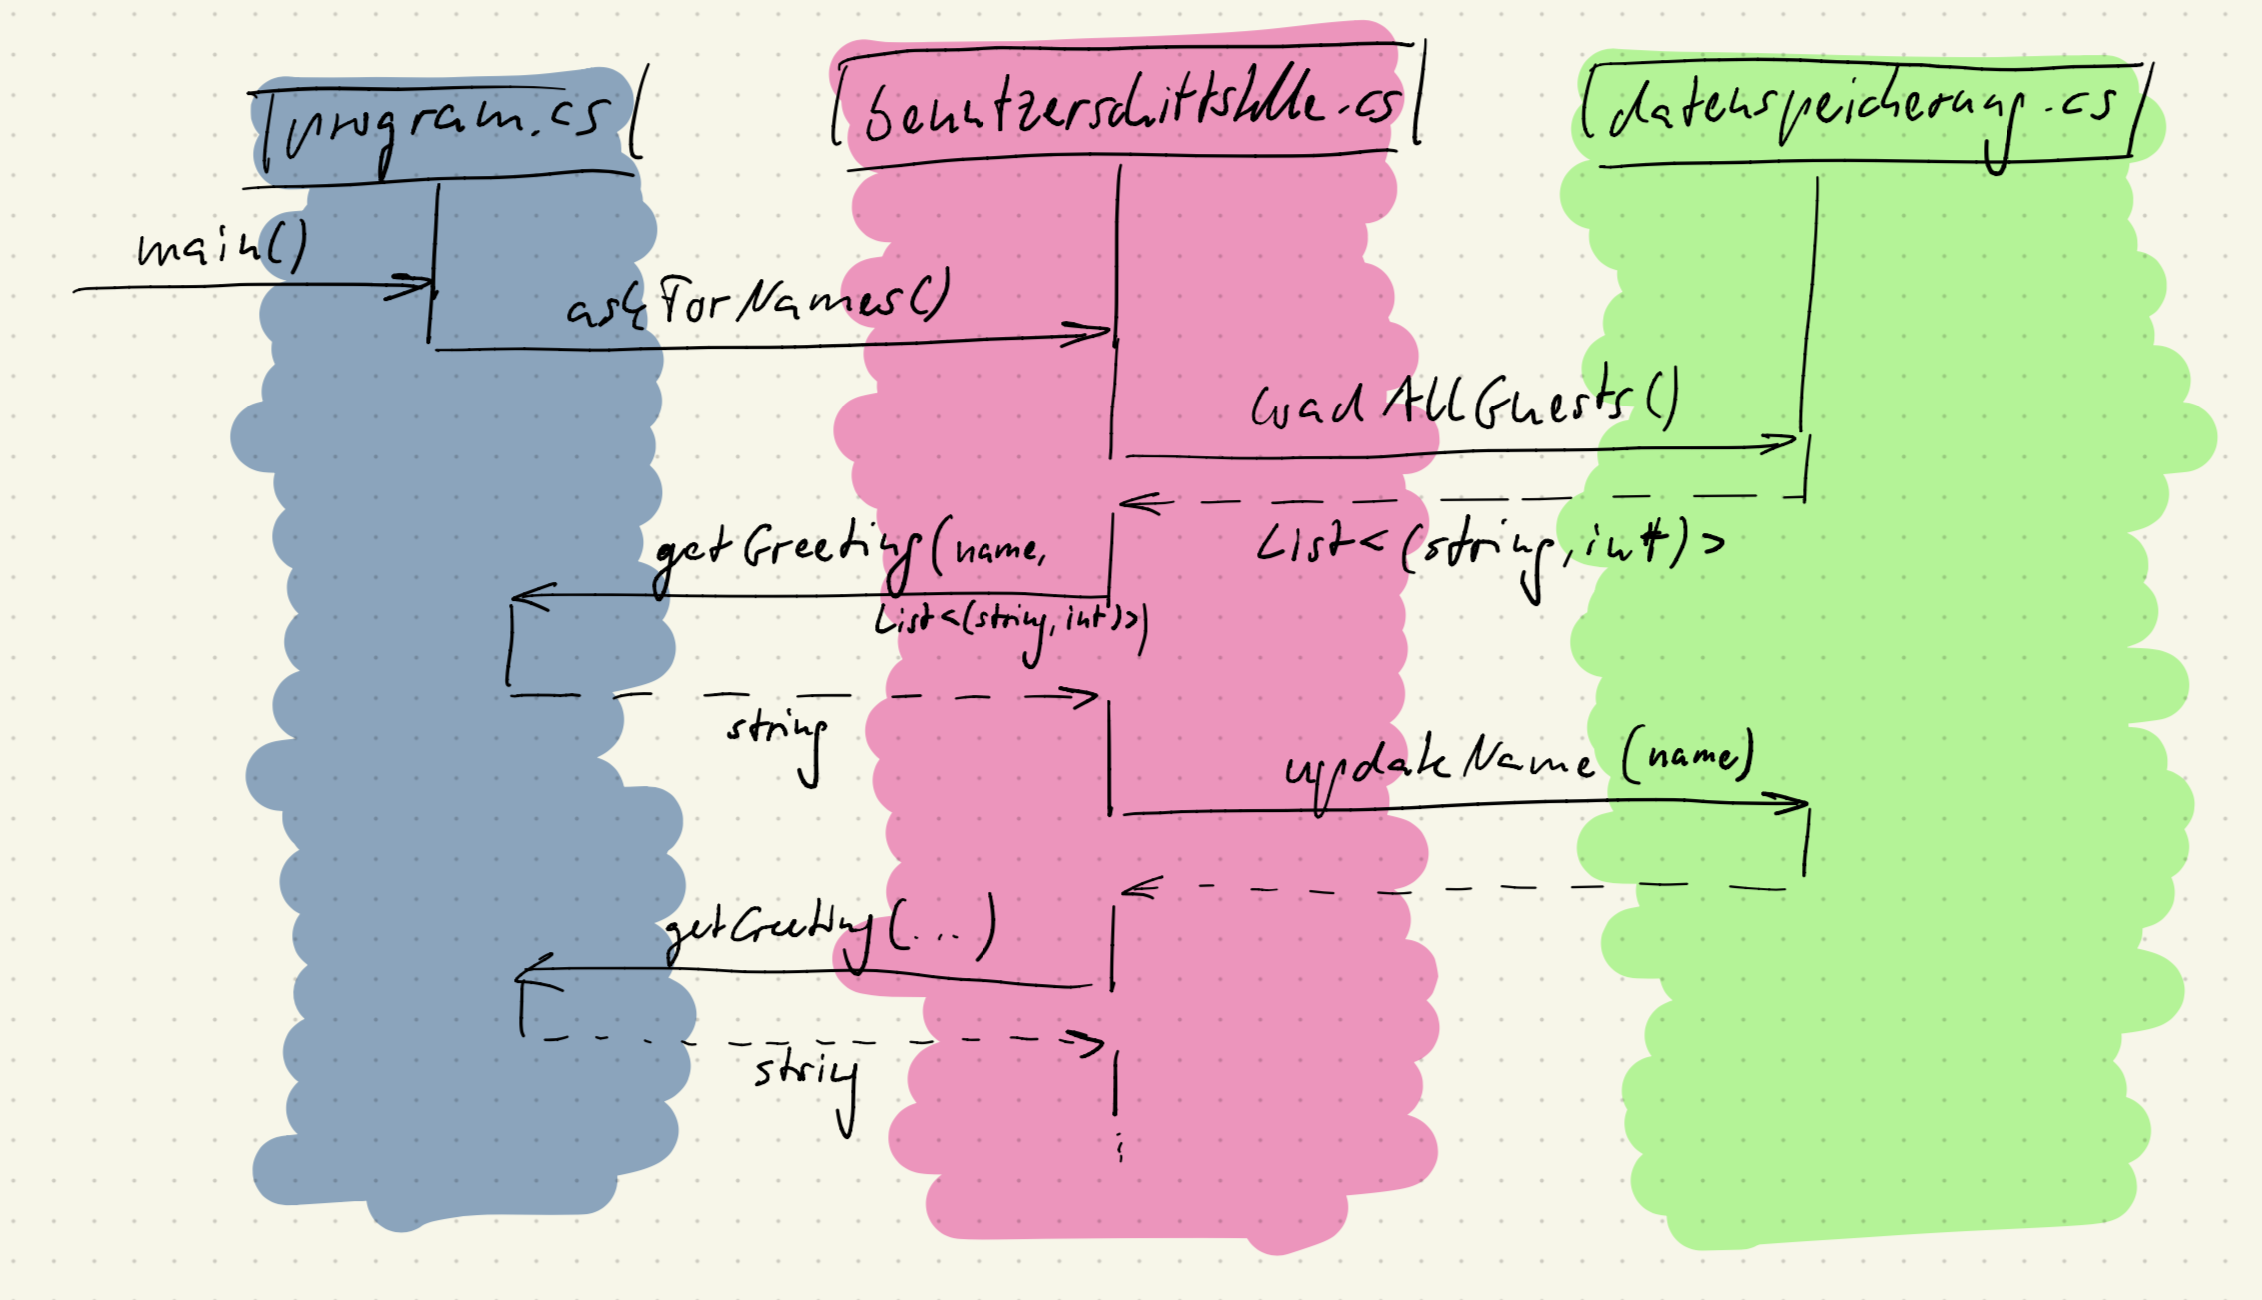 program.cs
benutzerschittstelle.cs
datenspeicherung.cs
main()
askForNames()
loadAllGuests()
List<(string, int)>
getGreeting(name,
List<(string, int)>)
string
updateName (name)
getGreeting(...)
string